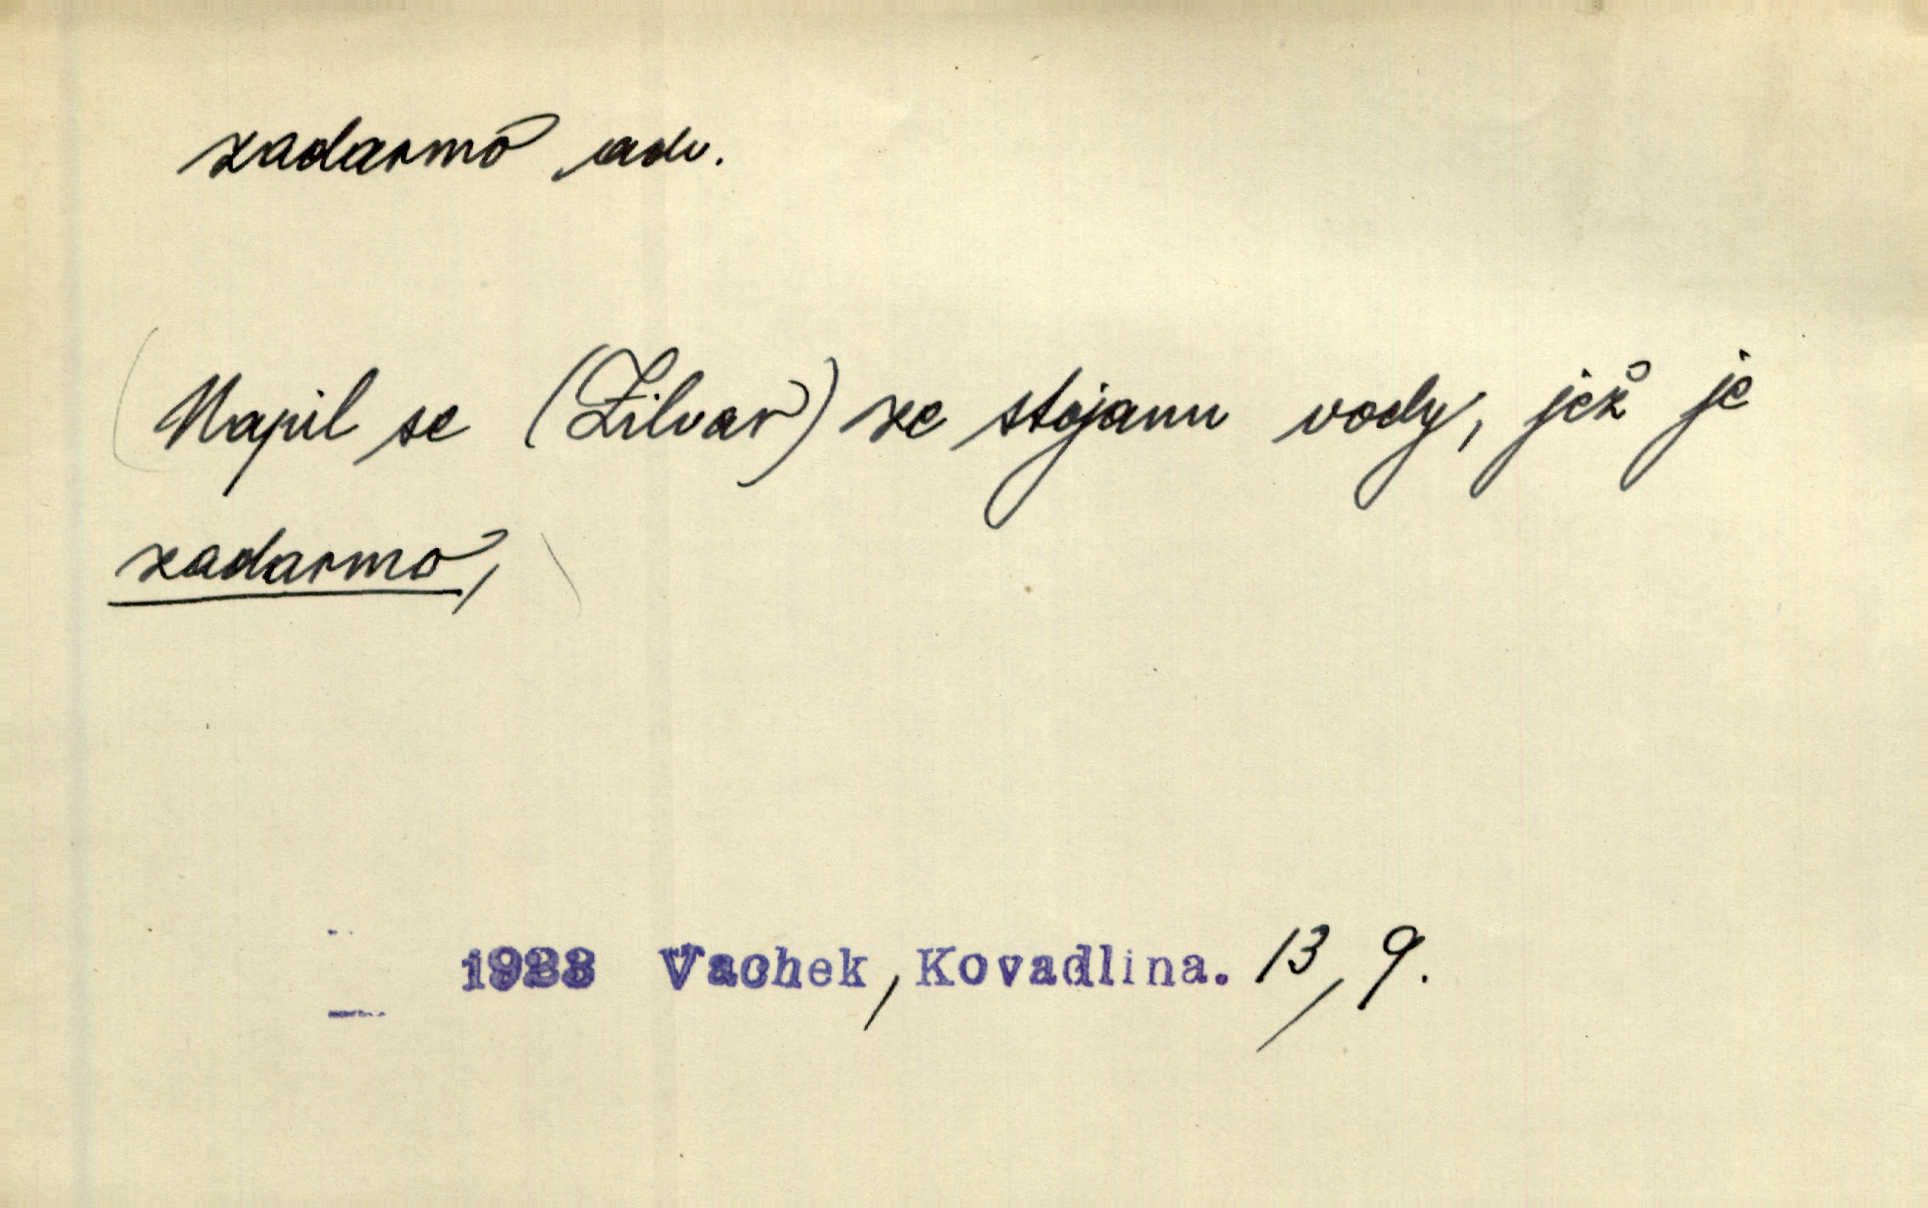 zadarmo adv.
(Napil se (Žilvar) ze stojanu vody, jež je
zadarmo,)
1933 Vachek, Kovadlina. 13, 9.